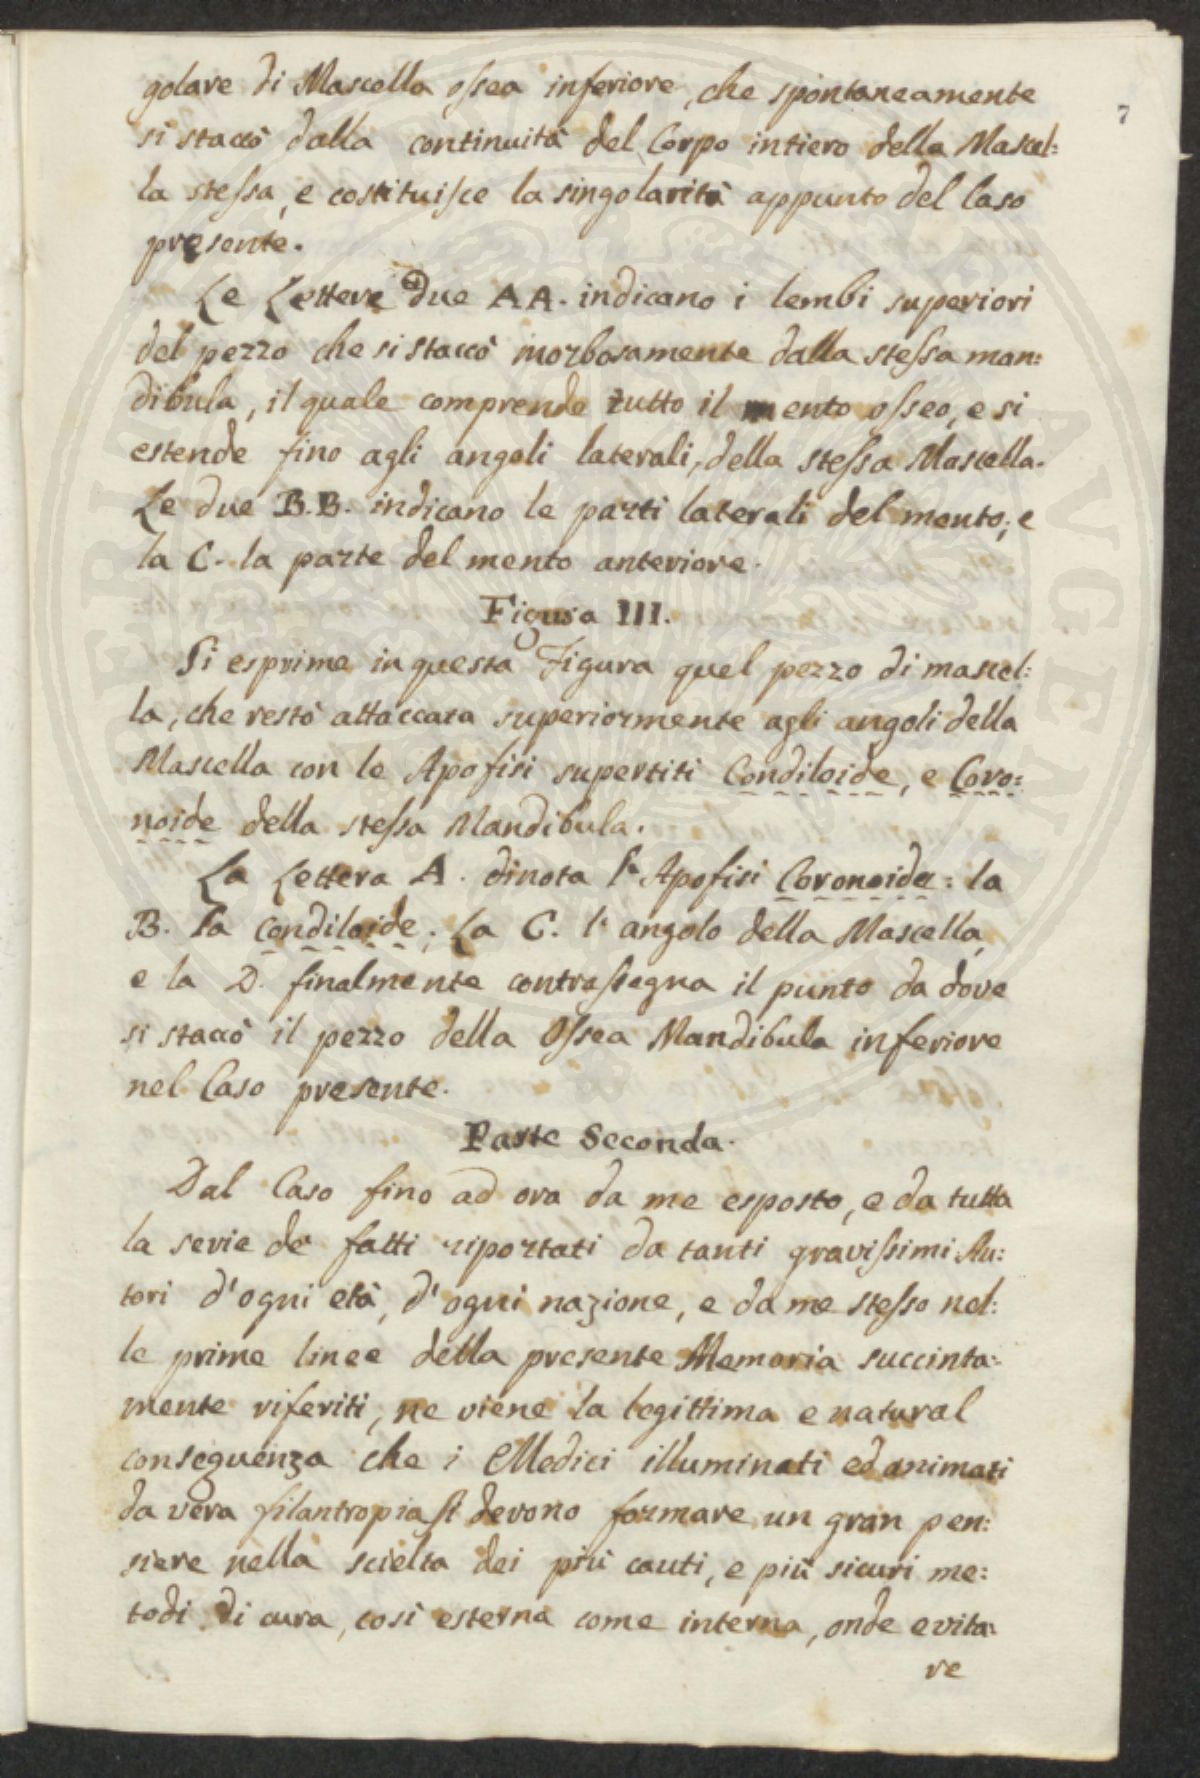 7
golare di Mascella ossea inferiore, che spontaneamente
si staccò dalla continuità del Corpo intiero della Mascel:
la stessa, e costituisce la singolarità appunto del Caso
presente.
Le Lettere due AA. indicano i lembi superiori
del pezzo che si staccò morbosamente dalla stessa man:
dibula, il quale comprende tutto il mento osseo, e si
estende fino agli angoli laterali, della stessa Mascella.
Le due B.B. indicano le parti laterali del mento; e
la C. la parte del mento anteriore.
Figura III.
Si esprime in questa Figura quel pezzo di mascel:
la, che restò attaccata superiormente agli angoli della
Mascella con le Apofisi superstiti Condiloide, e Coro:
noide della stessa Mandibula.
La Lettera A. dinota l'Apofisi Coronoide: la
B. la condiloide; La C. l'angolo della Mascella,
e la D. finalmente contrassegna il punto da dove
si staccò il pezzo della Ossea Mandibula inferiore
nel Caso presente.
Parte Seconda.
Dal Caso fino ad ora da me esposto, e da tutta
la serie de' fatti riportati da tanti gravissimi Au:
tori d'ogni età, d'ogni nazione, e da me stesso nel:
le prime linee della presente Memoria succinta:
mente riferiti, ne viene la legittima e natural
conseguenza che i Medici illuminati ed animati
da vera filantropia si devono formare un gran pen:
siere nella scielta dei più cauti, e più sicuri me:
todi di cura, così esterna come interna, onde evita:
re